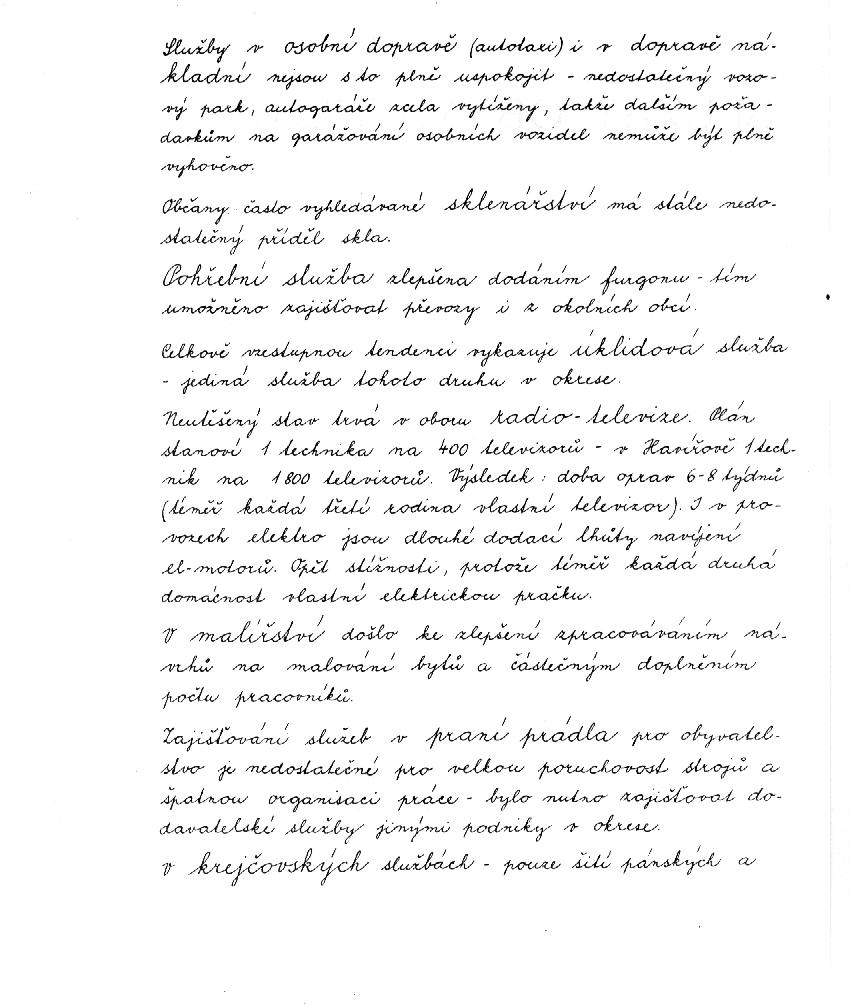 Služby v osobní dopravě (autotaxi) i v dopravě ná-
kladní nejsou s to plně uspokojit - nedostatečný vozo-
vý park, autogaráže zcela vytíženy, takže dalším poža-
davkům na garážování osobních vozidel nemůže být plně
vyhověno.
Občany často vyhledávané sklenářství má stále nedo-
statečný příděl skla.
Pohřební služba zlepšena dodáním furgonu - tím
umožněno zajišťovat převozy i z okolních obcí.
Celkově vzestupnou tendenci vykazuje úklidová služba
- jediná služba tohoto druhu v okrese.
Neutěšený stav trvá v oboru radio-televize. Plán
stanoví 1 technika na 400 televizorů - v Havířově 1 tech-
nik na 1800 televizorů. Výsledek: doba oprav 6-8 týdnů
(téměř každá třetí rodina vlastní televizor). I v pro-
vozech elektro jsou dlouhé dodací lhůty navíjení
el-motorů. Opět stížnosti, protože téměř každá druhá
domácnost vlastní elektrickou pračku.
V malířství došlo ke zlepšení zpracováváním ná-
vrhů na malování bytů a částečným doplněním
počtu pracovníků.
Zajišťování služeb v praní prádla pro obyvatel-
stvo je nedostatečné pro velkou poruchovost strojů a
špatnou organisaci práce - bylo nutno zajišťovat do-
davatelské služby jinými podniky v okrese.
V krejčovských službách - pouze šití pánských a